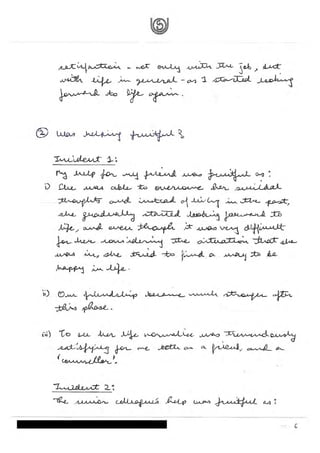 satisfaction - not only with the job, but
with life in general - as I started looking
forward to life again.
② Was helping fruitful?
Incident 1:
My help for my friend was fruitful as:
i) She was able to overcome her suicidal
thoughts and instead of living in the past,
she gradually started looking forward to
life, and even though it was very difficult
for her considering the situation that she
was in, she tried to find a way to be
happy in life.
ii) Our friendship became much stronger after
this phase.
iii) To see her life normalise was tremendously
satisfying for me both as a friend, and a
'counsellor'.
Incident 2:
The senior colleague's help was fruitful as:
6